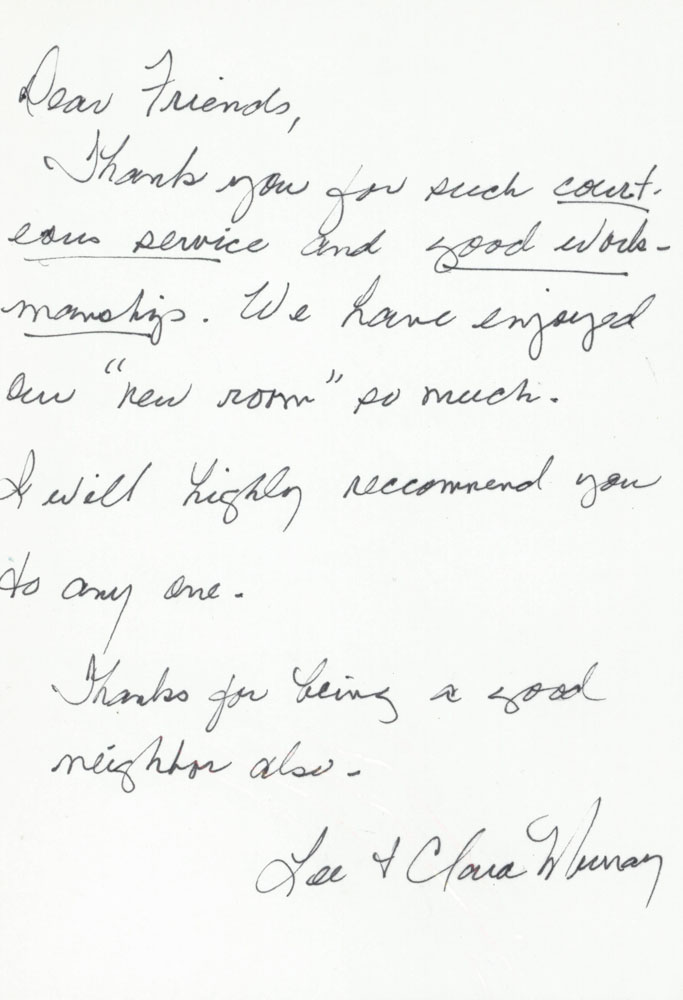 Dear Friends,
Thank you for such court-
eous service and good work-
manship. We have enjoyed
our "new room" so much.
I will highly reccommend you
to any one.
Thanks for being a good
neighbor also.
Lee & Clara Murray